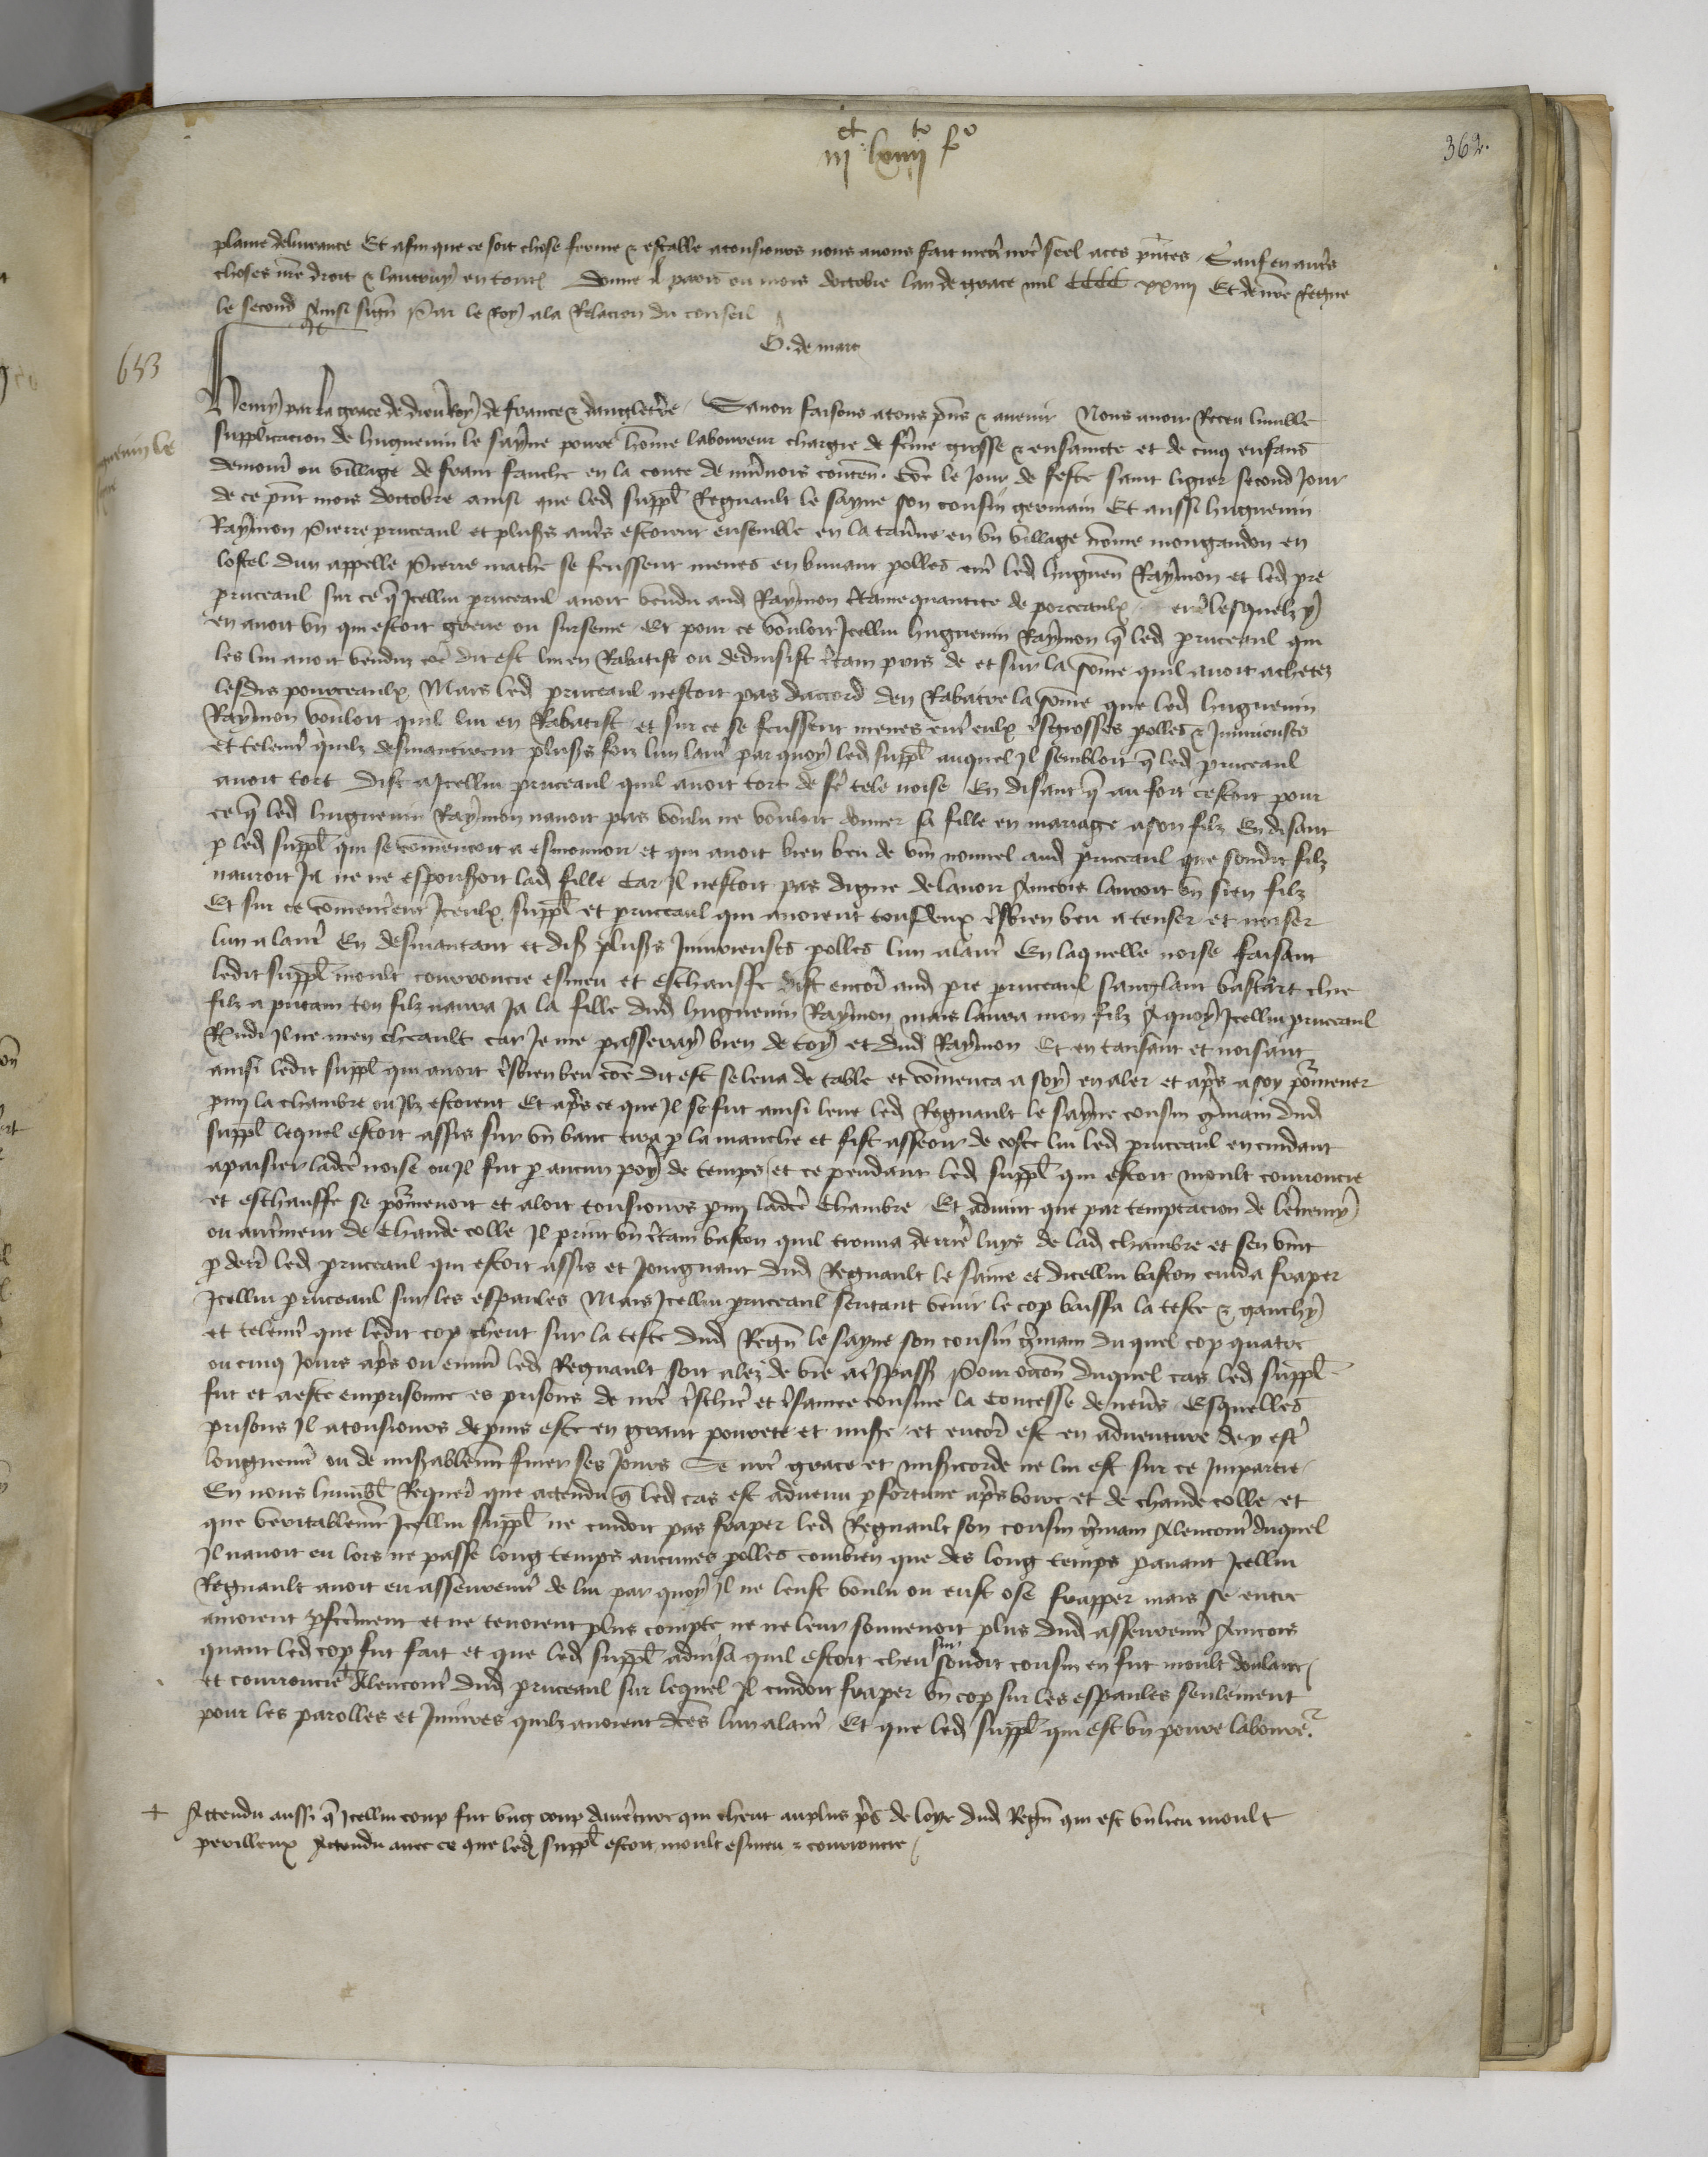 iii ct lxiiii to fo
362.
plaine deliurance Et afin que ce soit chose ferme & estable atousiours nous auons fait mectr nr̄e seel aces pn̄tes Sauf en autr̄s
choses nr̄e droit & lautruy en toutes donne A paris ou mois doctobre lan de grace mil CCCC xxiiii Et de nr̄e Regne
le second Ainsi sign̄ Par le Roy ala Relacion du conseil
G. de marc
653
Henry par la grace de dieu Roy de france & dangleterr̄e Sauoir faisons atous pn̄s & auenir Nous auoir Receu lumble
supplicacion de huguenin le sayne poure hōme laboureur chargie de fēme grosse & ensaincte et de cinq enfans
demour̄ ou village de frant franche en la conte de niu̅nois conten̄ Cōe le Jour de feste saint ligier second Jour
de ce pn̄t mois doctobre ainsi que led suppl̄ Regnault le sayne son cousin germain Et aussi huguenin
Raymon Pierre pruceaul et plusrs autr̄s estoient ensemble en la tau̅ne en vn village nōme mongaudon en
lostel dun appelle Pierre mathe se feussent meues en buuant polles entr̄ led huguen̄ Raymon et led pre
pruceaul sur ce q̄ Jcellui pruceaul auoit vendu aud Raymon c̄taine quantite de porceaulx entr̄e lesquelz y
en auoit vn qui estoit gresle ou surseme Et pour ce vouloit Jcellui huguenin Raymon q̄ led pruceaul qui
les lui auoit venduz cōe dit est lui en Rabatist ou deduisist c̄tain pris de et sur la sōme quil auoit achetez
lesdis pourceaulx Mais led pruceaul nestoit pas daccord den Rabatre la sōme que led huguenin
Raymon vouloit quil lui en Rabatist et sur ce se feussent meues entr̄ eulx tr̄sgrosses polles & Jniurieuses
et telem̄t quilz desmantirent plusrs foiz lun lautr̄ par quoy led suppl̄ auquel Jl sembloit q̄ led pruceaul
auoit tort dist a Jcellui pruceaul quil auoit tort de fē tele noise En disant q̄ au fort cestoit pour
ce q̄ led huguenin Raymon nauoit pas voulu ne vouloit donner sa fille en mariage ason filz En disant
p led suppl̄ qui se cōmencoit a esmouuoir et qui auoit bien beu de vin nouuel aud pruceaul que soudit filz
nauroit Ja ne ne espouseroit lad fille Car Jl nestoit pas digne delauoir Aincois lauroit vn sien filz
Et sur ce cōmencer̄ent Jceulx suppl̄ et pruceaul qui auoient tous deux tr̄sbien beu a tenser et noiser
lun a lautr̄ En desmantant et dis plusrs Jniurieuses polles lun alautr̄ En laquelle noise faisant
ledit suppl̄ moult courroucie esmeu et eschauffe dist encor̄ aud pre pruceaul sanglant bastart chie
filz a putain ton filz naura Ja la fille dud huguenin Raymon mais laura mon filz A quoy Jcellui pruceaul
Rn̄di Jl ne men cheault car Je me passeray bien de toy et dud Raymon Et en tansant et noisant
ainsi ledit suppl̄ qui auoit tr̄sbien beu cōe dit est se leua de table et cōmenca a soy en aler et apr̄s a soy pōmener
pmy la chambre ou Jlz estoient Et apr̄s ce que Jl se fut ainsi leue led Regnault le sayne cousin g̅main dud
suppl̄ lequel estoit assis sur vn banc tira p la manche et fist asseoir de coste lui led pruceaul en cuidant
apaisier ladcē noise ou Jl fut p aucun poy de temps et ce pendant led suppl̄ qui estoit moult courroucie
et eschauffe se pōmenoit et aloit tousiours pmy ladcē chambre Et aduint que par temptacion de lēnemy
ou autr̄ment de chaude colle Jl print vn c̄tain baston quil trouua derr̄ luys de lad chambre et sen vint
p derr̄ led pruceaul qui estoit assis et Joingnant dud Regnault le saine et dicellui baston cuida fraper
Jcellui pruceaul sur les espaules Mais Jcellui pruceaul sentant venir le cop baissa la teste & ganchy
et telem̄t que ledit cop cheut sur la teste dud Regn̄ le sayne son cousin g̅main du quel cop quatre
ou cinq Jours apr̄s ou enuir̄ led Regnault soit alez de vie a tr̄spass Pour occōn duquel cas led suppl̄
fut et a este emprisonne es prisons de nr̄e tr̄schr̄e et tr̄samee cousine la Contesse de neuers Esquelles
prisons Jl a tousiours depuis este en grant pourete et miss̄e et encor̄ est en aduenture de y est̄
longuem̄t ou de miss̄ablem̄t finer ses Jours Se nr̄e grace et miss̄icorde ne lui est sur ce Jmpartie
En nous humbl̄ Requer̄ que actendu q̄ led cas est aduenu p fortune apr̄s boire et de chaude colle et
que veritablem̄t Jcellui suppl̄ ne cuidoit pas fraper led Regnault son cousin g̅main Alencontr̄ duquel
Jl nauoit eu lors ne passe long temps aucunes polles combien que des long temps parauant Jcellui
Regnault auoit eu asseurem̄t de lui par quoy Jl ne leust voulu ou eust ose frapper mais se entre
amoient pfctēment et ne tenoient plus compte ne ne leur souuenoit plus dud asseurem̄t Aincois
quant led cop fut fait et que led suppl̄ aduisa quil estoit cheu sur soudit cousin en fut moult doulant
et courroucie Alencontr̄ dud pruceaul sur lequel Jl cuidoit fraper vn cop sur les espaules seulement
pour les parolles et Jniures quilz auoient dc̄es lun alautr̄ Et que led suppl̄ qui est vn poure labour̄e
+ Actendu aussi q̄ Jcellui coup fut vng coup dauētur̄e qui cheut au plus pr̄s de loye dud Regn̄ qui est vn lieu moult
perilleux Actendu auec ce que led suppl̄ estoit moult esmeu & courroucie